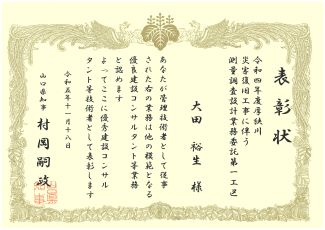 表彰状
令和四年度厚狭川
災害復旧工事に伴う
測量調査設計業務委託第一工区
大田 裕生 様
あなたが管理技術者として従事
された右の業務は他の模範となる
優良建設コンサルタント等業務
と認めます
よってここに優秀建設コンサル
タント等技術者として表彰します
令和五年十一月十八日
山口県知事 村岡嗣政